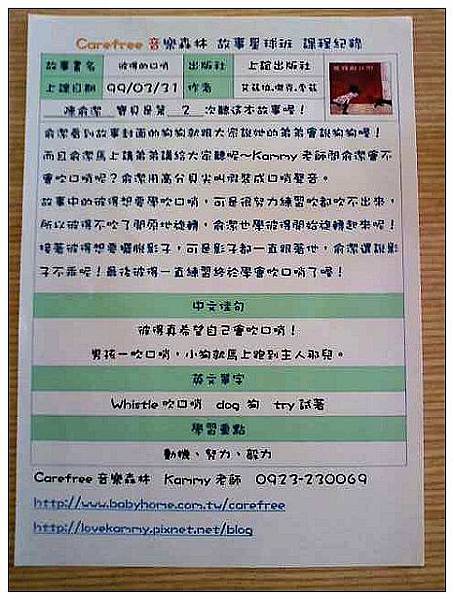 Carefree 音樂森林 故事星球班 課程紀錄
故事書名 彼得的口哨 出版社 上誼出版社
上課日期 99/03/31 作者 艾茲拉.傑克.季茲
陳俞潔 寶貝是第 2 次聽這本故事喔!
俞潔看到故事封面的狗狗就跟大家說她的弟弟會說狗狗喔!
而且俞潔馬上請弟弟講給大家聽呢~Kammy 老師問俞潔會不
會吹口哨呢?俞潔用高分貝尖叫假裝成口哨聲音。
故事中的彼得想要學吹口哨,可是很努力練習吹都吹不出來,
所以彼得不吹了開始原地旋轉,俞潔也學彼得開始旋轉起來呢!
接著彼得想要擺脫影子,可是影子都一直跟著他,俞潔還說影
子不乖呢!最後彼得一直練習終於學會吹口哨了喔!
中文佳句
彼得真希望自己會吹口哨!
男孩一吹口哨,小狗就馬上跑到主人那兒。
英文單字
Whistle 吹口哨 dog 狗 try 試著
學習重點
動機、努力、毅力
Carefree 音樂森林 Kammy 老師 0923-230069
http://www.babyhome.com.tw/carefree
http://lovekammy.pixnet.net/blog